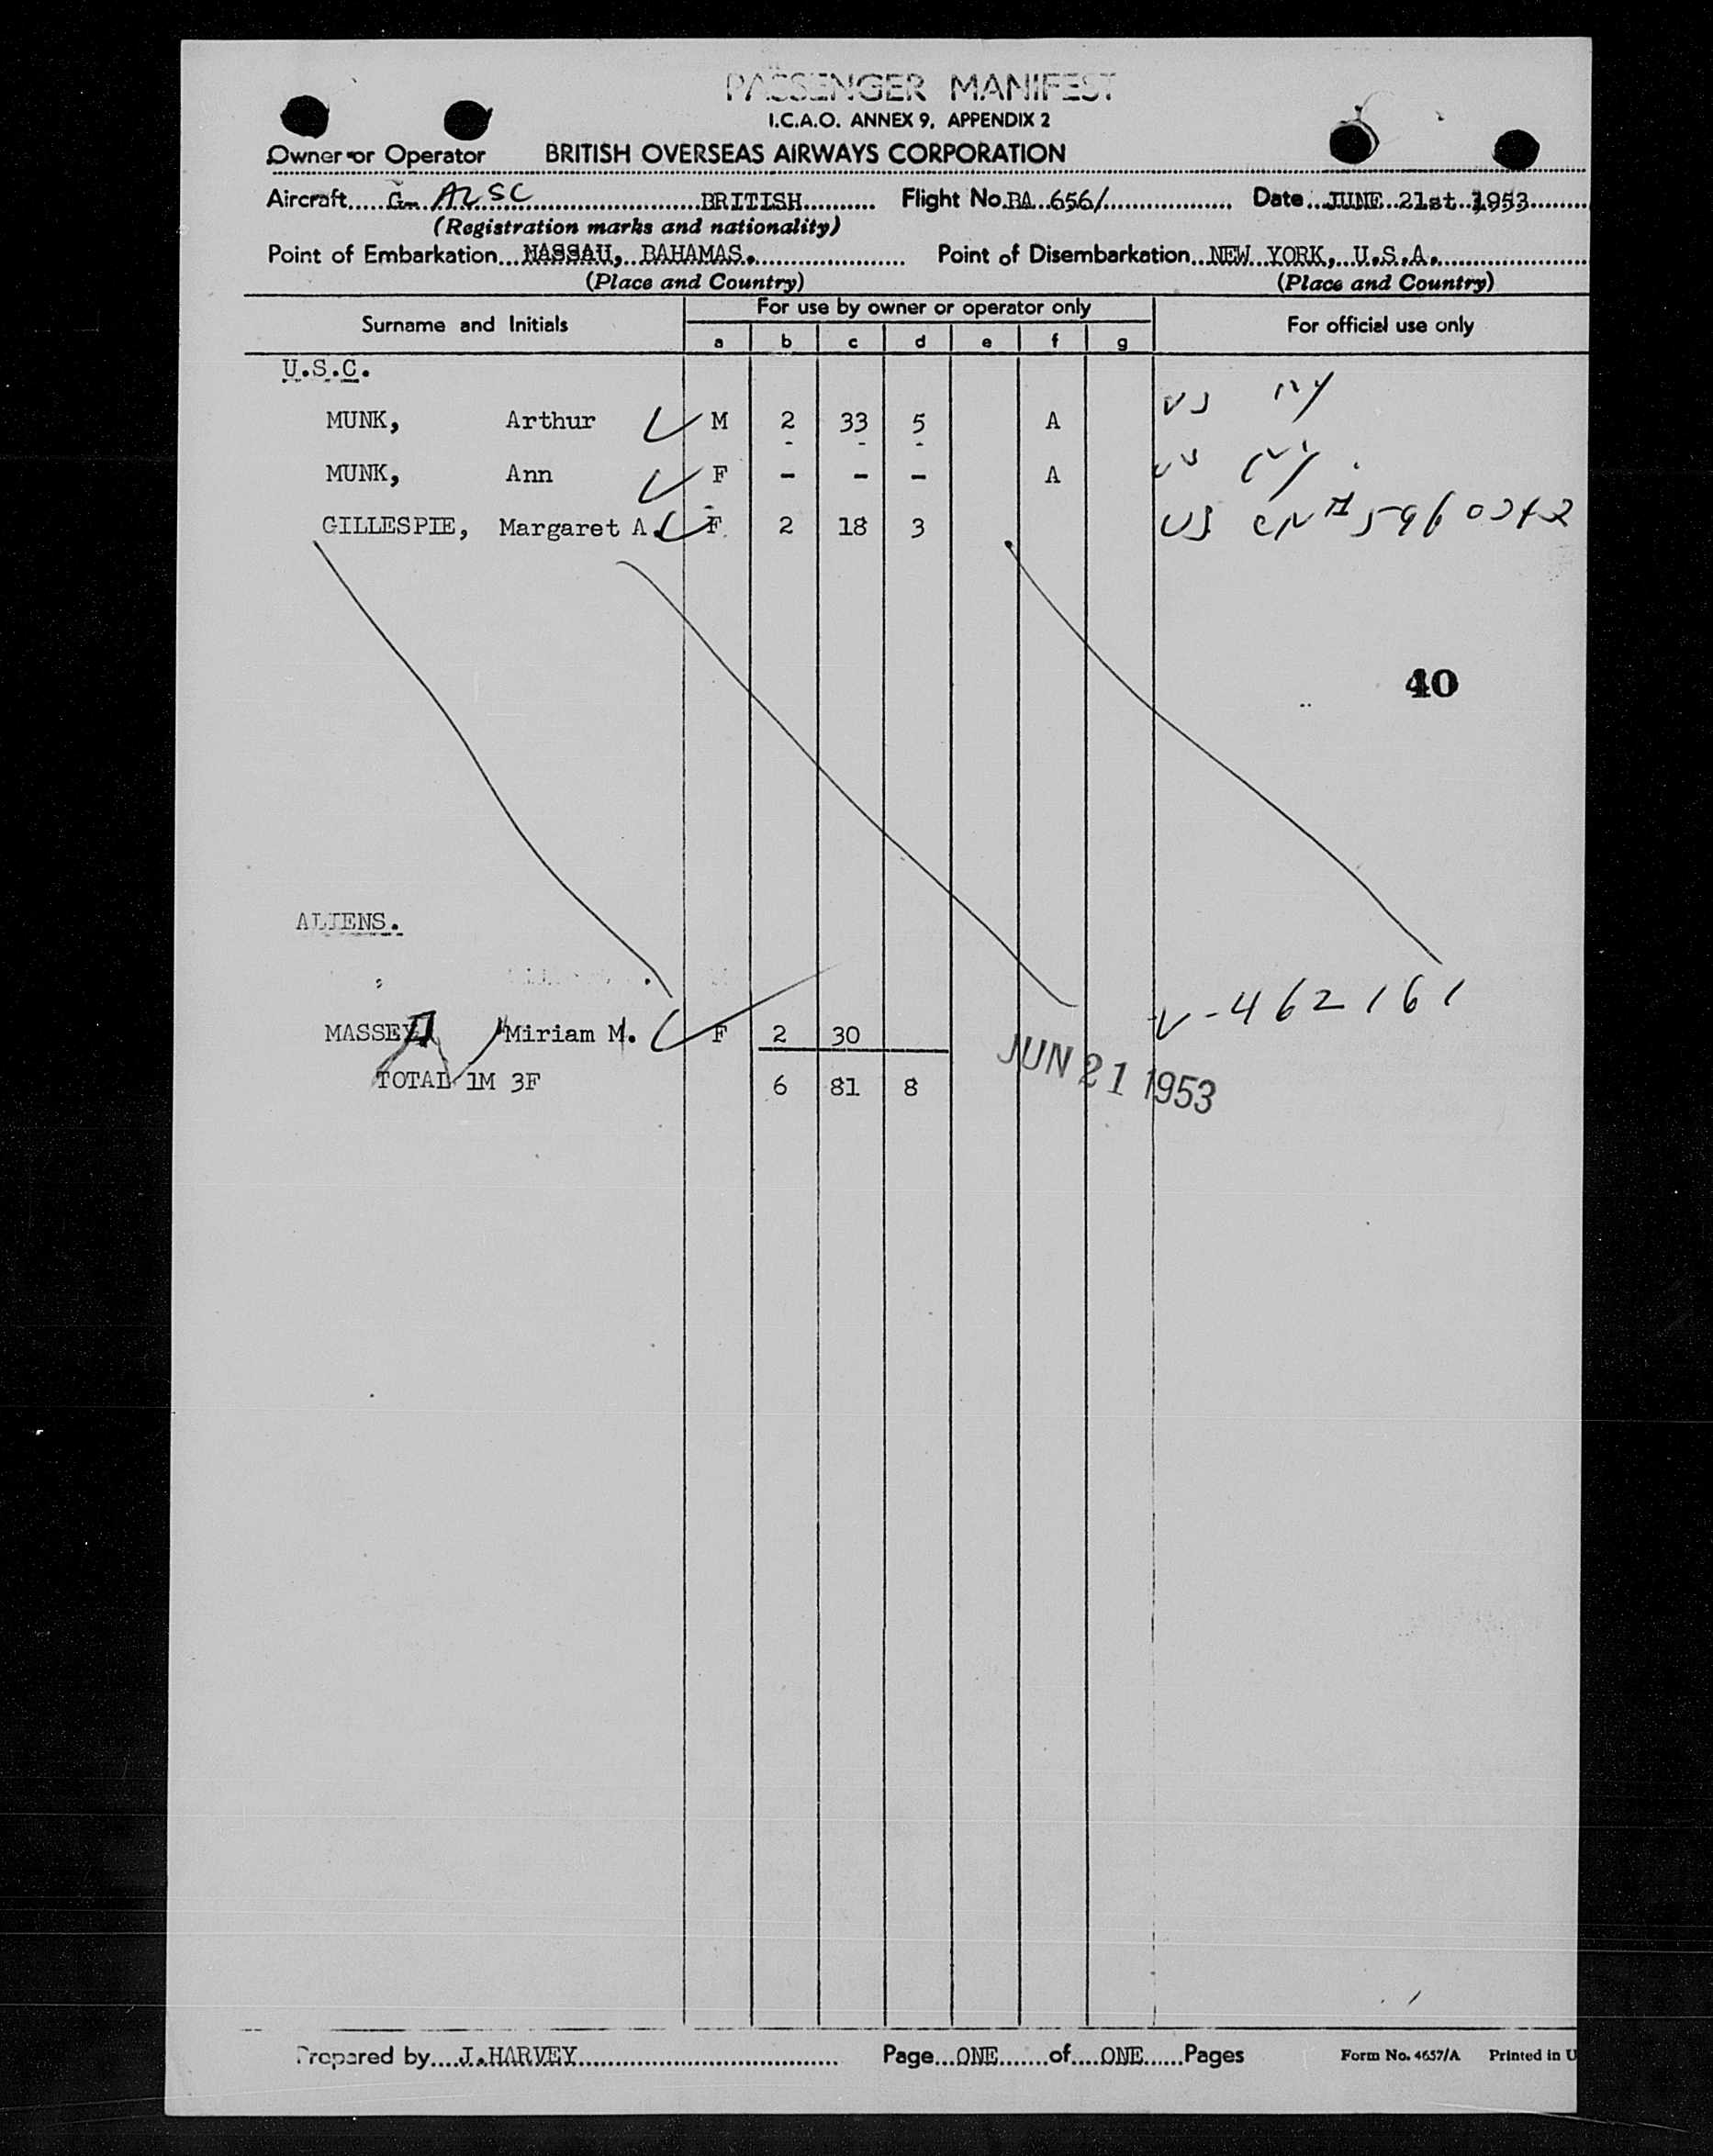 PASSENGER MANIFEST
I.C.A.O. ANNEX 9, APPENDIX 2
Owner or Operator BRITISH OVERSEAS AIRWAYS CORPORATION
Aircraft G- ALSC BRITISH Flight No. BA 656/ Date JUNE 21st 1953
(Registration marks and nationality)
Point of Embarkation NASSAU, BAHAMAS. Point of Disembarkation NEW YORK, U.S.A.
(Place and Country) (Place and Country)
Surname and Initials For use by owner or operator only For official use only
a b c d e f g
U.S.C.
MUNK, Arthur M 2 33 5 A US NY
MUNK, Ann F - - - A US NY.
GILLESPIE, Margaret A. F 2 18 3 US CN#
40
ALIENS.
MASSEY Miriam M. F 2 30 V-462161
TOTAL 1M 3F 6 81 8
JUN 21 1953
Prepared by J.HARVEY Page ONE of ONE Pages Form No. 4657/A Printed in U